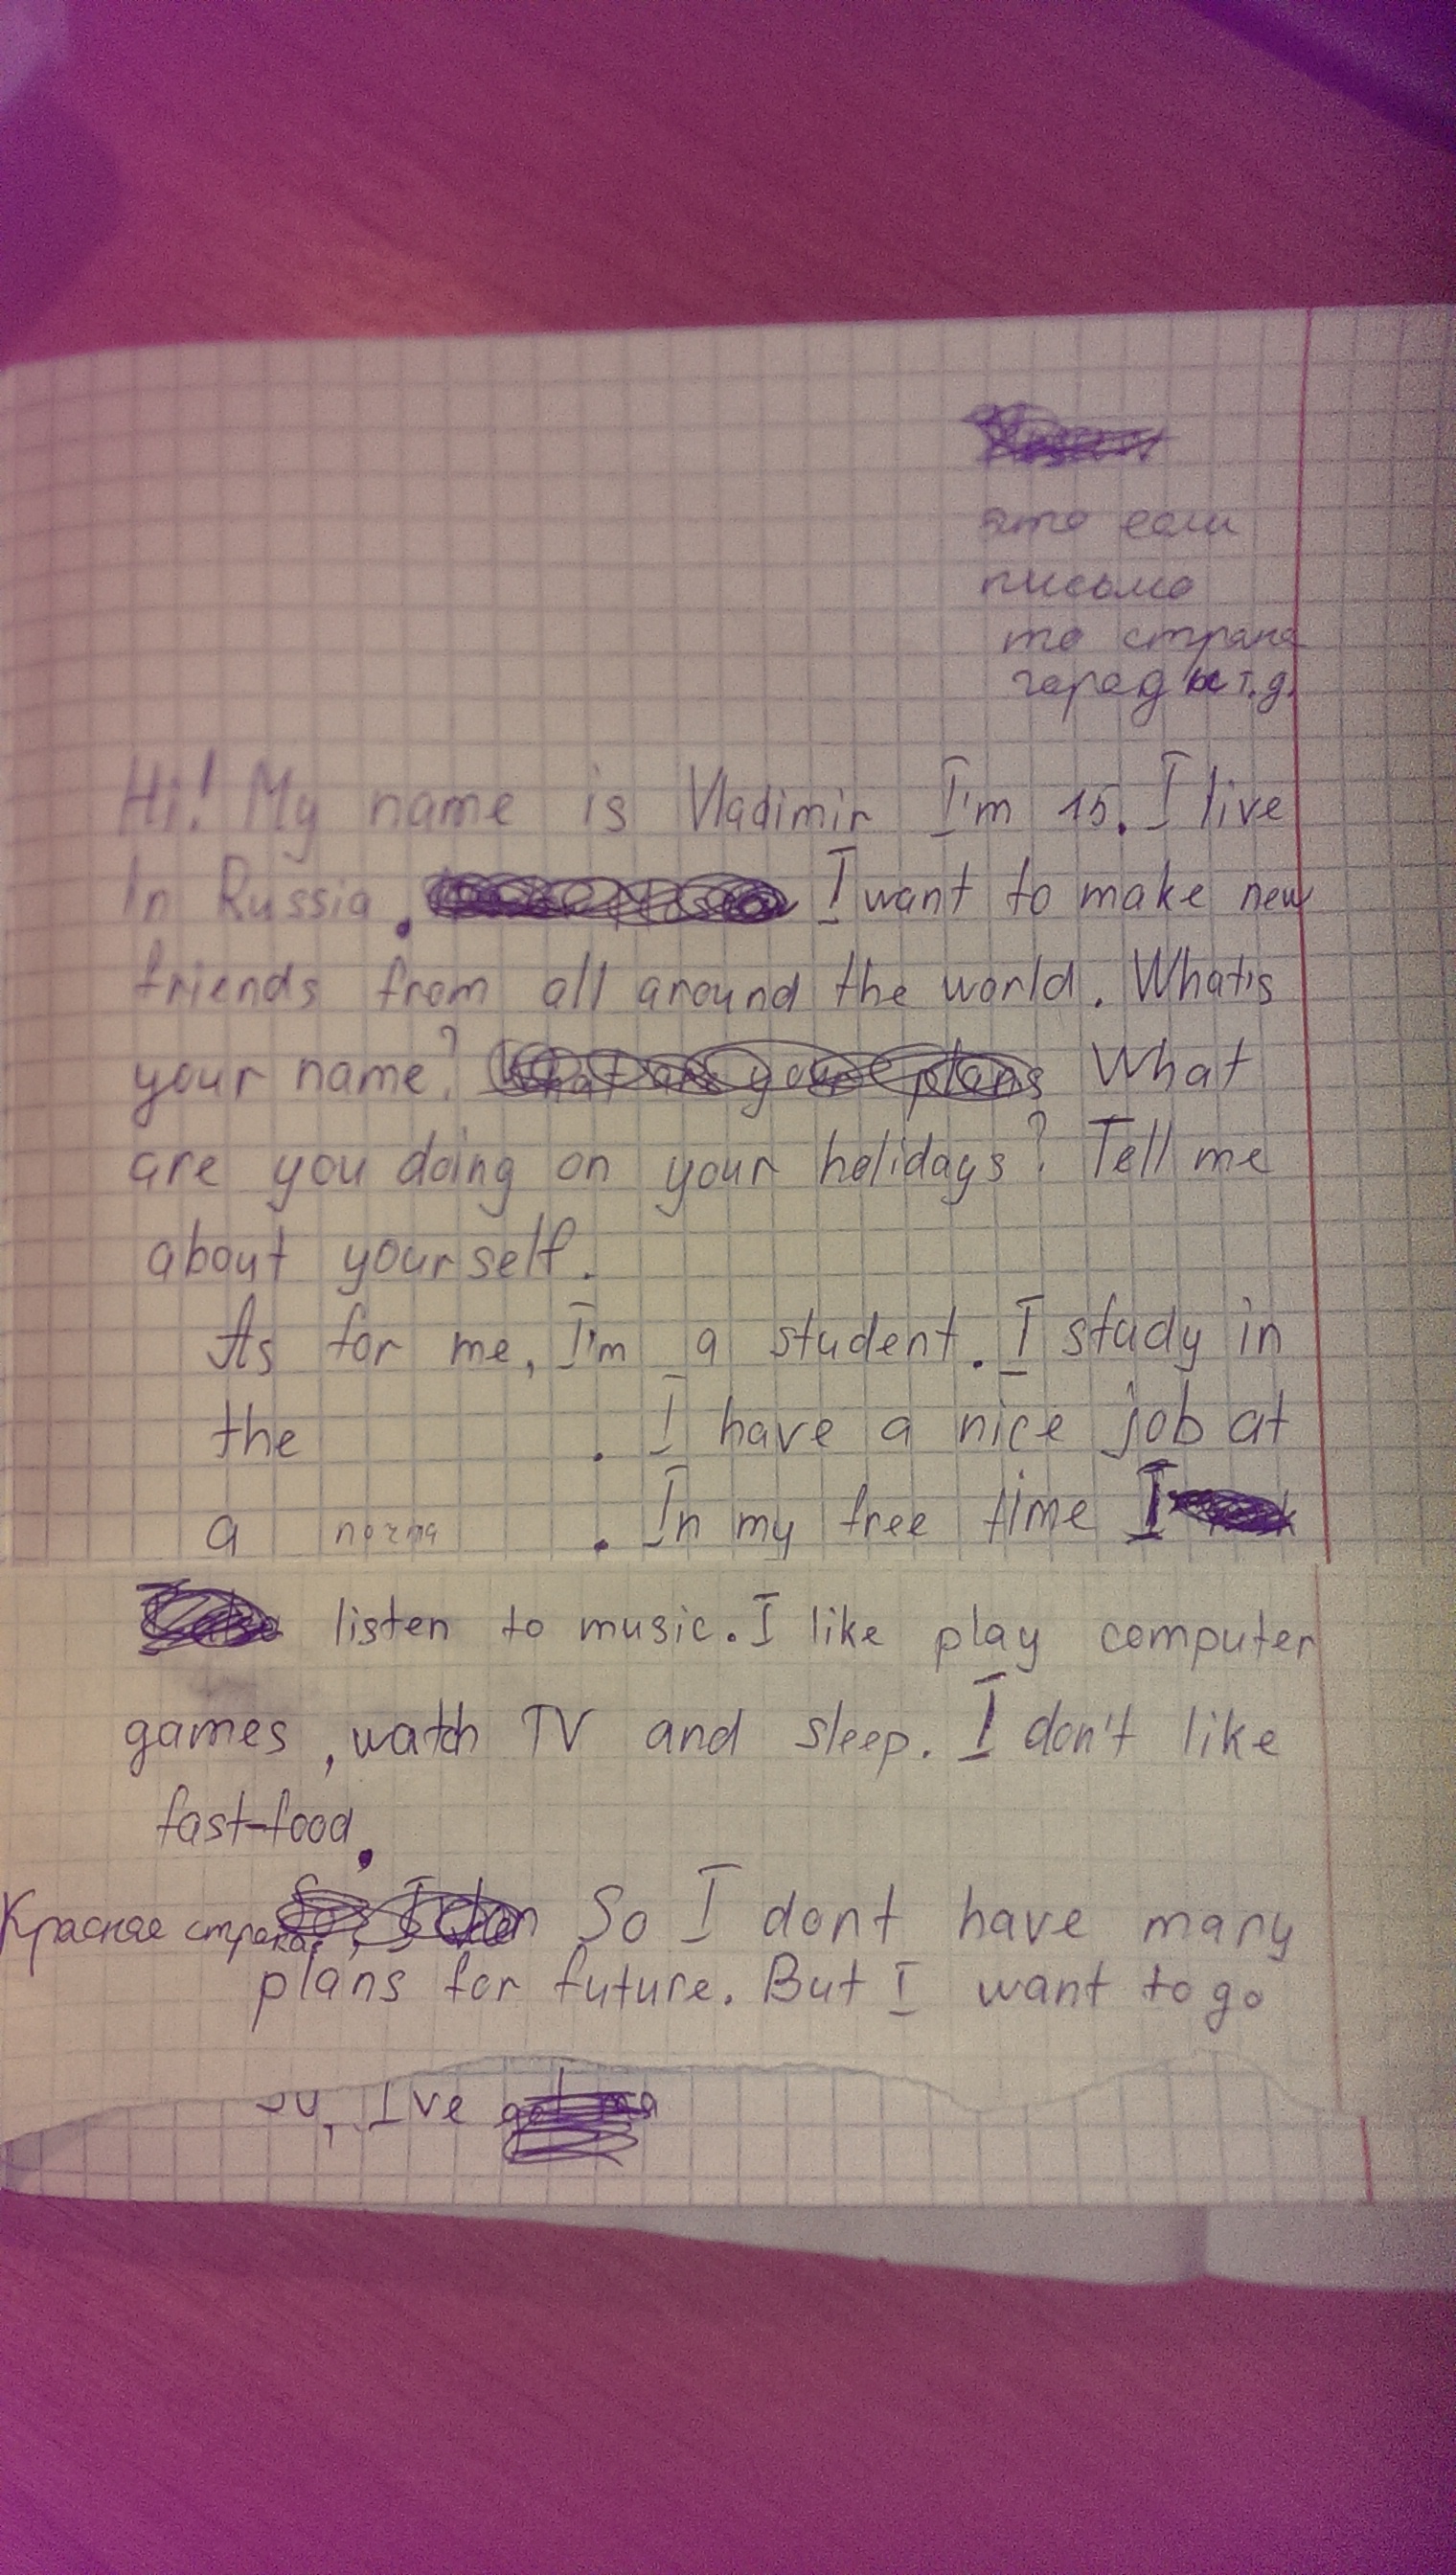 это если
письмо
то страна
город и т.д.
Hi! My name is Vladimir I'm 15. I live
In Russia. I want to make new
friends from all around the world. What's
your name? What are your plans What
are you doing on your holidays? Tell me
about yourself.
As for me, I'm a student. I study in
the . I have a nice job at
a . In my free time I
listen to music. I like play computer
games, watch TV and sleep. I don't like
fast-food.
Красная строка So I dont have many
plans for future. But I want to go
I've